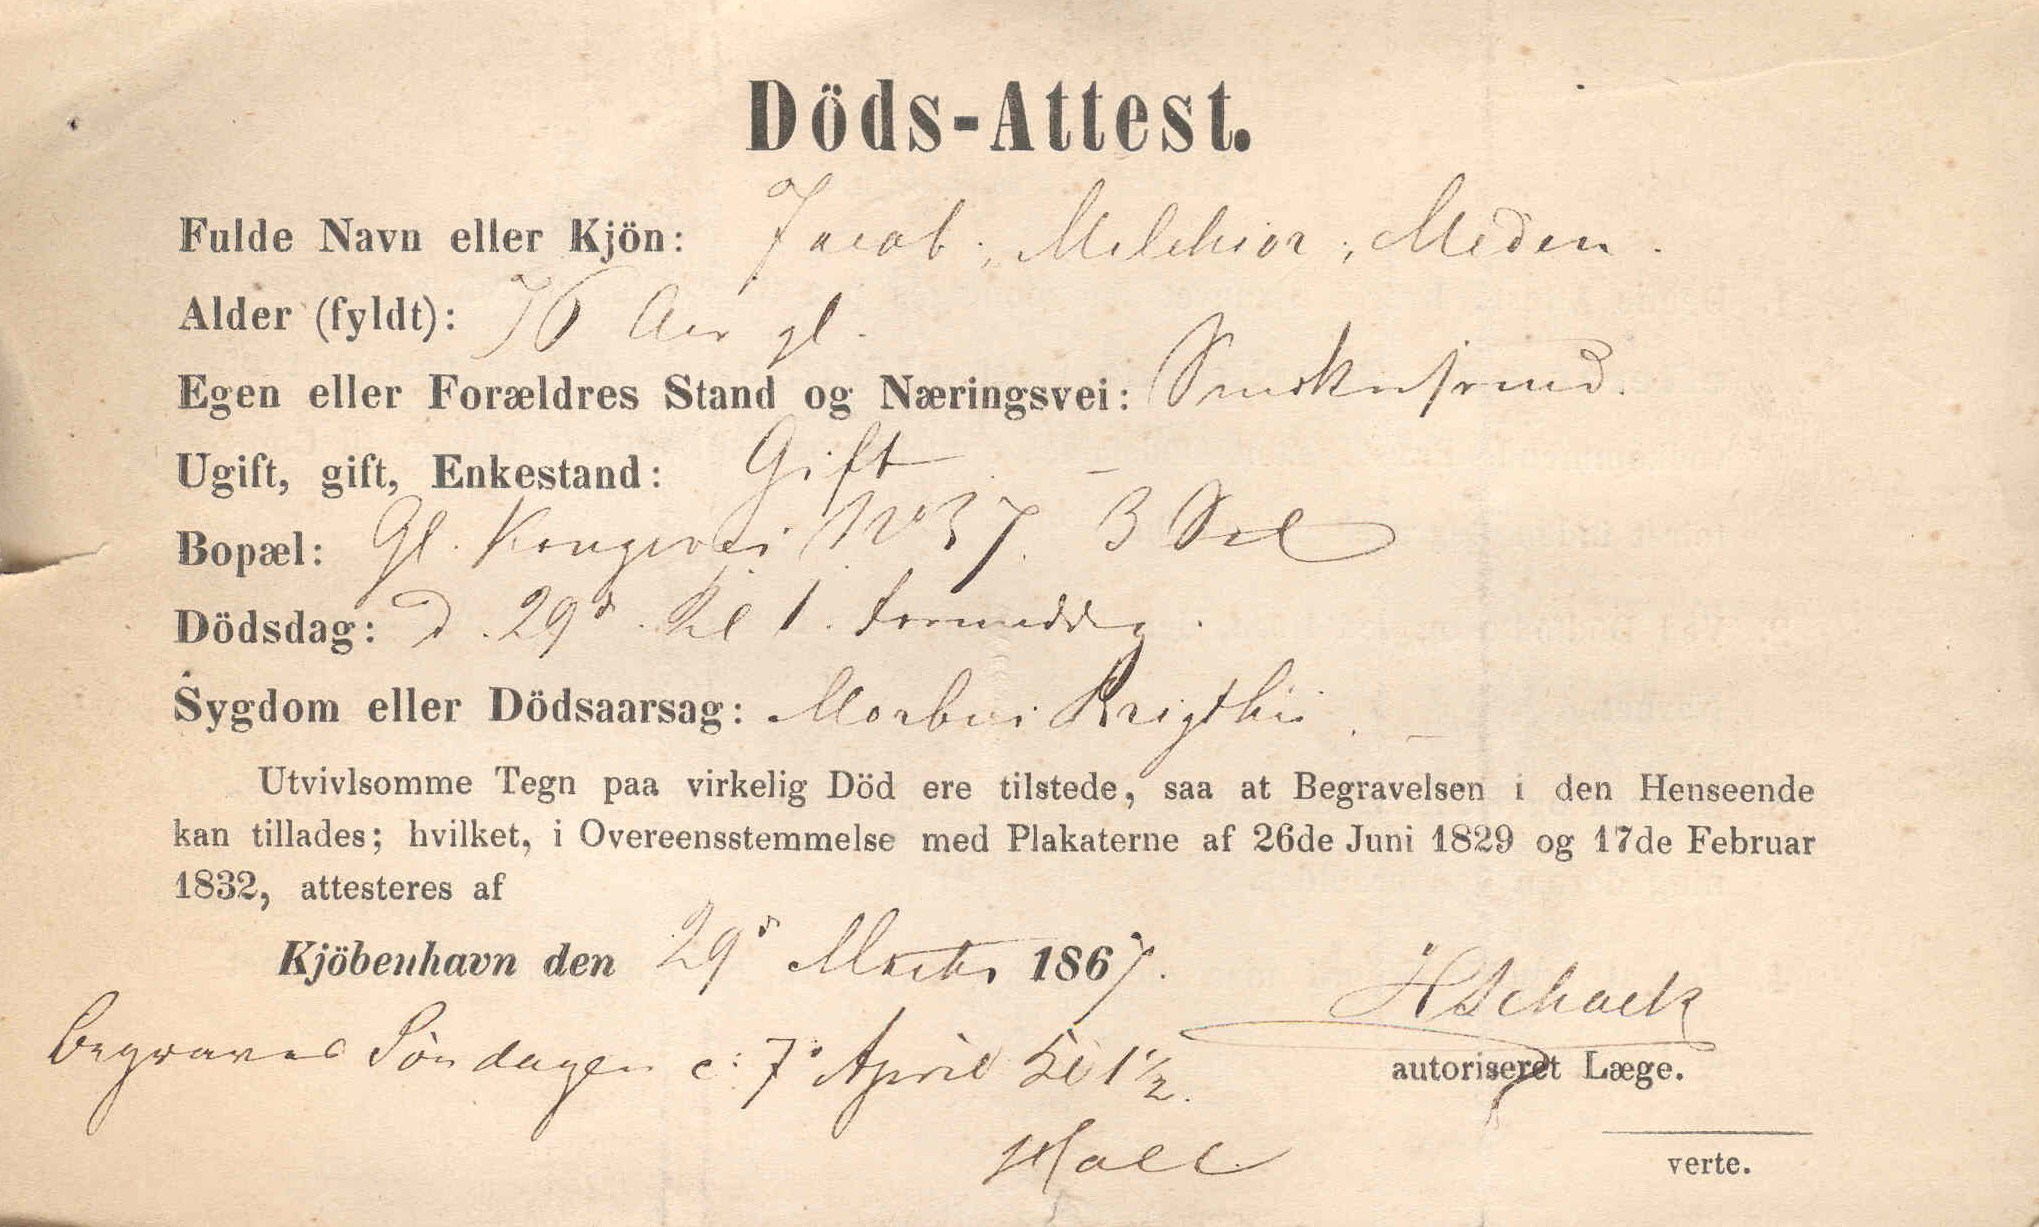 Döds-Attest.
Fulde Navn eller Kjön: Jacob, Melchior, Meden.
Alder (fyldt): 76 Aar gl.
Egen eller Forældres Stand og Næringsvei: Snedkersvend.
Ugift, gift, Enkestand: Gift
Bopæl: Gl. Kongevei No 37. 3 Sal
Dödsdag: d. 29d. Kl 1. Formiddag.
Sygdom eller Dödsaarsag: Morbus Brigthii.
Utvivlsomme Tegn paa virkelig Död ere tilstede, saa at Begravelsen i den Henseende
kan tillades; hvilket, i Overeensstemmelse med Plakaterne af 26de Juni 1829 og 17de Februar
1832, attesteres af
Kjöbenhavn den 29d Marts 1867.
HSchack
autoriseret Læge.
Begraves Söndagen d: 7d April Kl 1 1/2.
Hall
verte.